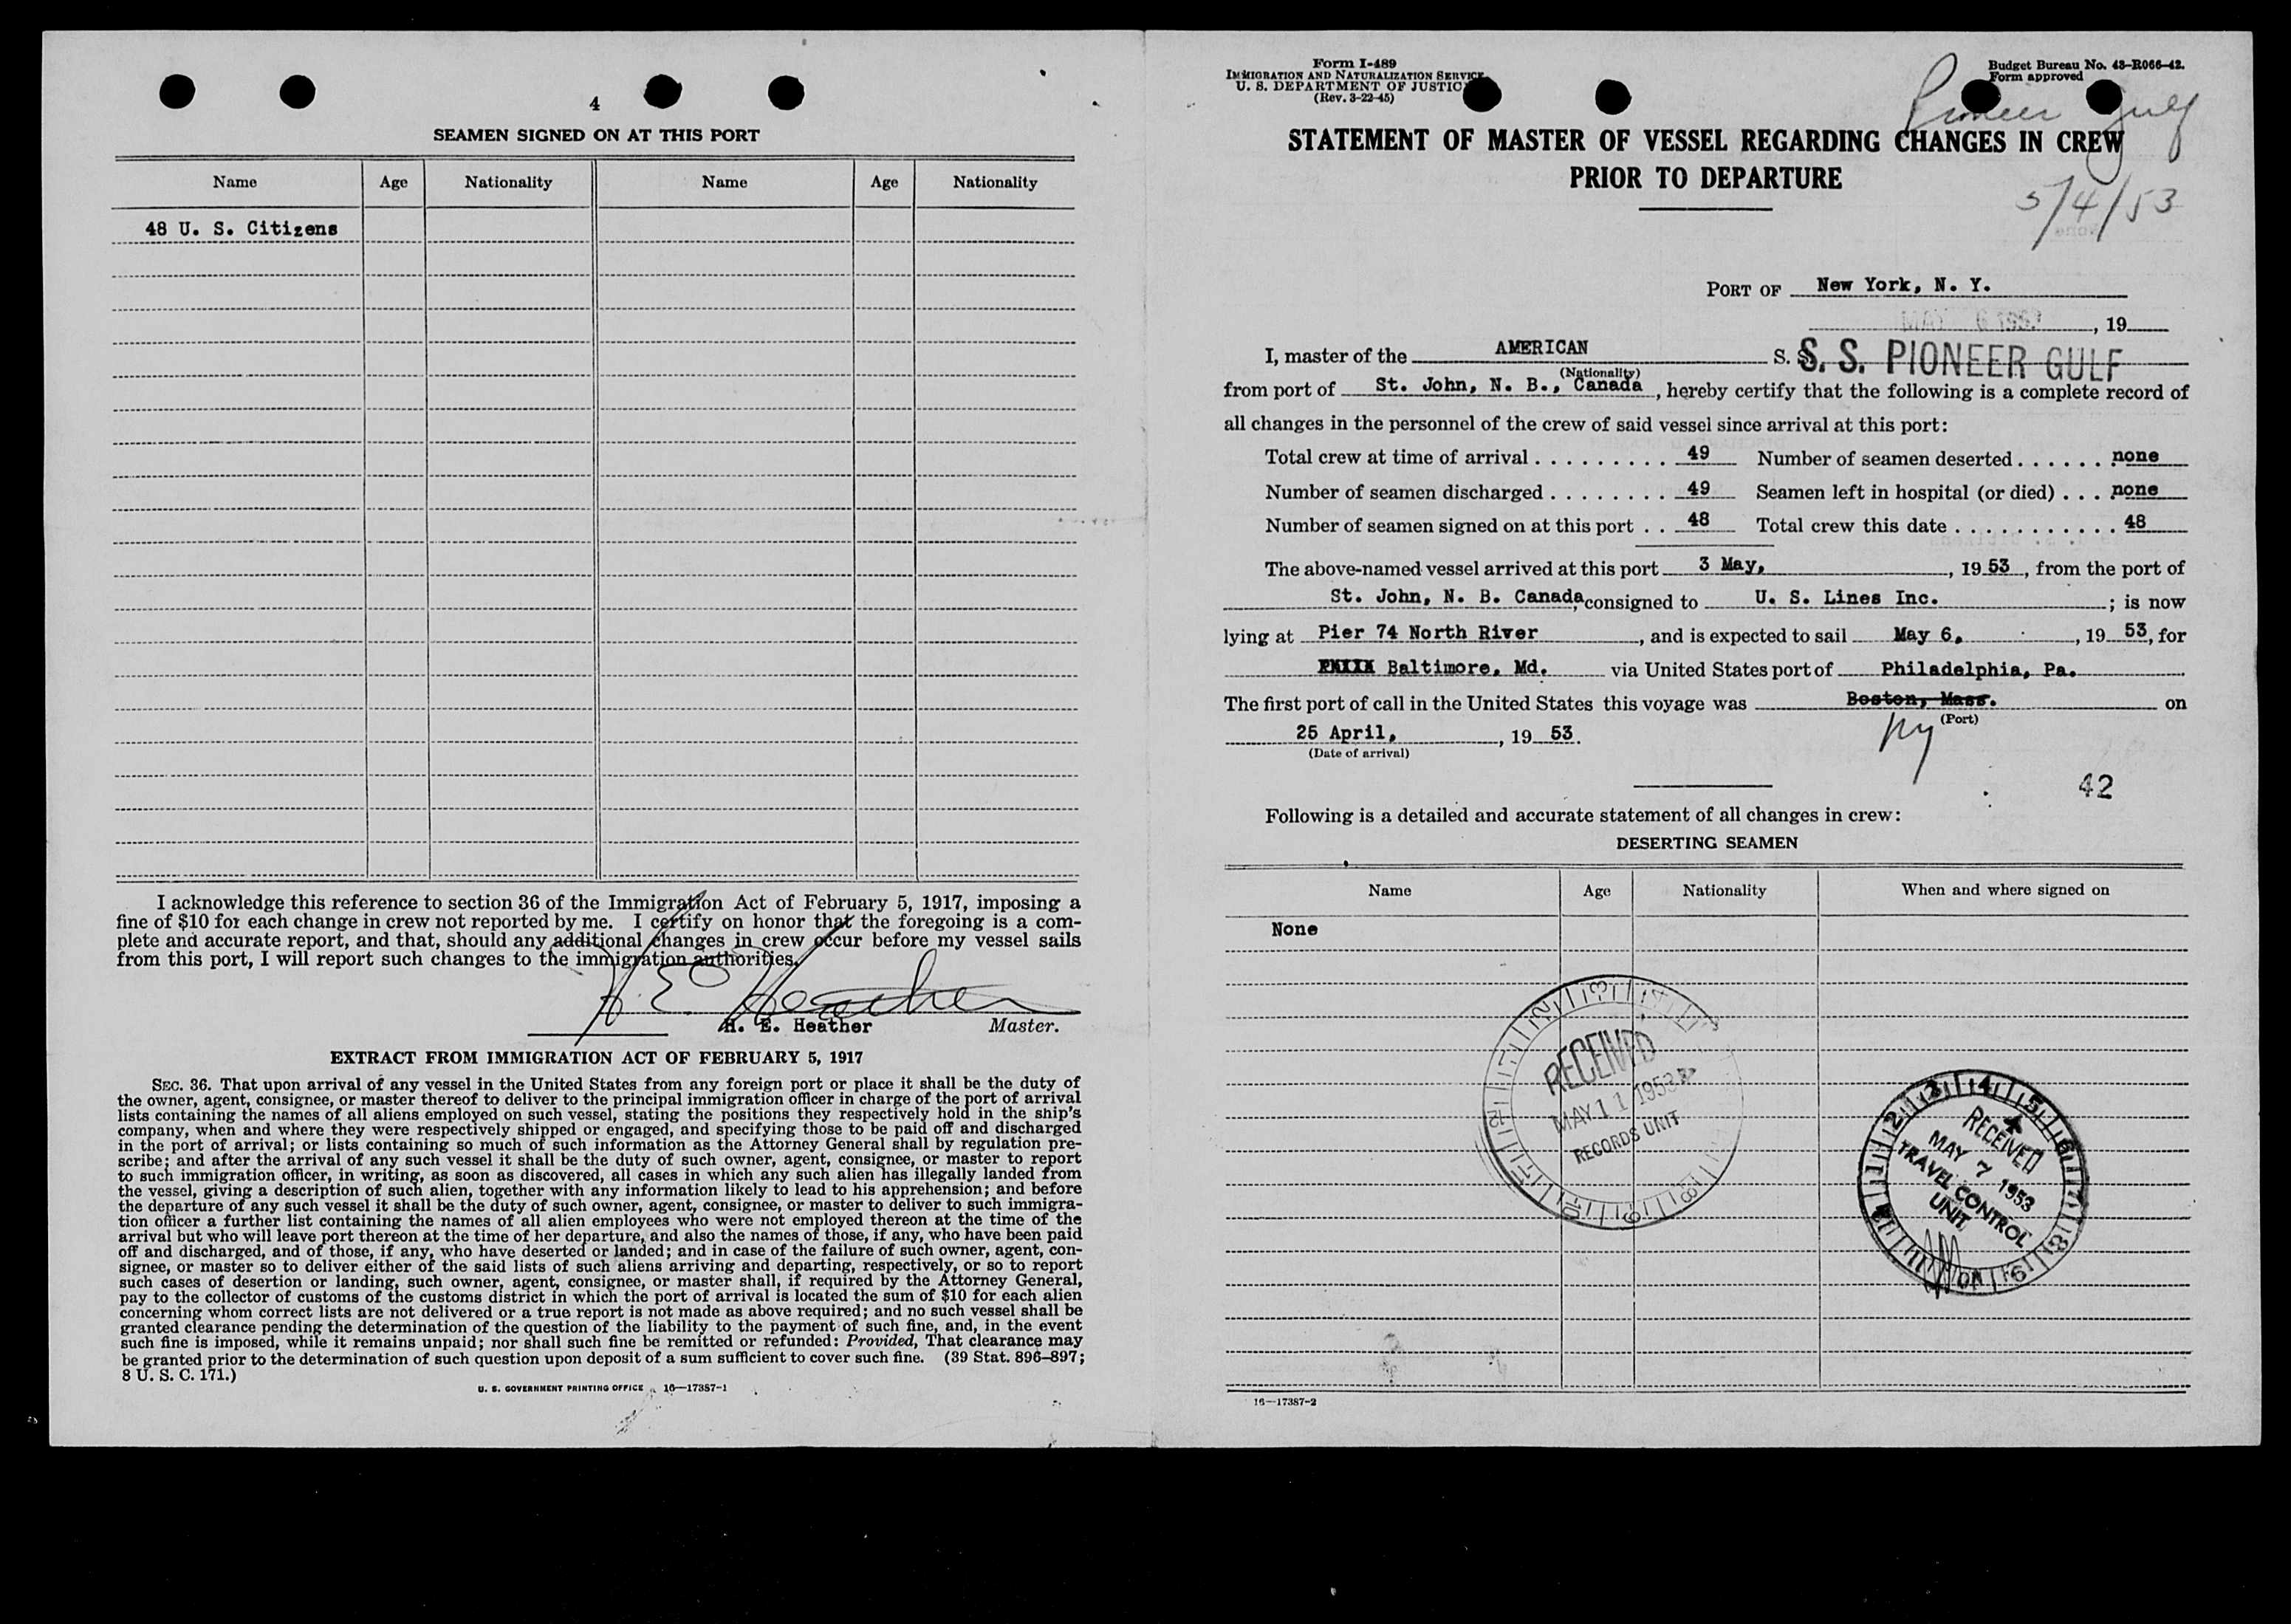 4
SEAMEN SIGNED ON AT THIS PORT
Name Age Nationality Name Age Nationality
48 U. S. Citizens
I acknowledge this reference to section 36 of the Immigration Act of February 5, 1917, imposing a
fine of $10 for each change in crew not reported by me. I certify on honor that the foregoing is a com-
plete and accurate report, and that, should any additional changes in crew occur before my vessel sails
from this port, I will report such changes to the immigration authorities.
H. E. Heather
H. E. Heather Master.
EXTRACT FROM IMMIGRATION ACT OF FEBRUARY 5, 1917
SEC. 36. That upon arrival of any vessel in the United States from any foreign port or place it shall be the duty of
the owner, agent, consignee, or master thereof to deliver to the principal immigration officer in charge of the port of arrival
lists containing the names of all aliens employed on such vessel, stating the positions they respectively hold in the ship's
company, when and where they were respectively shipped or engaged, and specifying those to be paid off and discharged
in the port of arrival; or lists containing so much of such information as the Attorney General shall by regulation pre-
scribe; and after the arrival of any such vessel it shall be the duty of such owner, agent, consignee, or master to report
to such immigration officer, in writing, as soon as discovered, all cases in which any such alien has illegally landed from
the vessel, giving a description of such alien, together with any information likely to lead to his apprehension; and before
the departure of any such vessel it shall be the duty of such owner, agent, consignee, or master to deliver to such immigra-
tion officer a further list containing the names of all alien employees who were not employed thereon at the time of the
arrival but who will leave port thereon at the time of her departure, and also the names of those, if any, who have been paid
off and discharged, and of those, if any, who have deserted or landed; and in case of the failure of such owner, agent, con-
signee, or master so to deliver either of the said lists of such aliens arriving and departing, respectively, or so to report
such cases of desertion or landing, such owner, agent, consignee, or master shall, if required by the Attorney General,
pay to the collector of customs of the customs district in which the port of arrival is located the sum of $10 for each alien
concerning whom correct lists are not delivered or a true report is not made as above required; and no such vessel shall be
granted clearance pending the determination of the question of the liability to the payment of such fine, and, in the event
such fine is imposed, while it remains unpaid; nor shall such fine be remitted or refunded: Provided, That clearance may
be granted prior to the determination of such question upon deposit of a sum sufficient to cover such fine. (39 Stat. 896–897;
8 U. S. C. 171.)
U. S. GOVERNMENT PRINTING OFFICE 16—17387-1
Form I-489
IMMIGRATION AND NATURALIZATION SERVICE
U. S. DEPARTMENT OF JUSTICE
(Rev. 3-22-45)
Budget Bureau No. 43-R066-42.
Form approved
Pioneer Gulf
STATEMENT OF MASTER OF VESSEL REGARDING CHANGES IN CREW
PRIOR TO DEPARTURE
5/4/53
PORT OF New York, N. Y.
MAY 6 1953, 19
I, master of the AMERICAN S. S. S. S. PIONEER GULF
(Nationality)
from port of St. John, N. B., Canada, hereby certify that the following is a complete record of
all changes in the personnel of the crew of said vessel since arrival at this port:
Total crew at time of arrival . . . . . . . . . . 49 Number of seamen deserted . . . . . . none
Number of seamen discharged . . . . . . . . 49 Seamen left in hospital (or died) . . . none
Number of seamen signed on at this port . . 48 Total crew this date . . . . . . . . . . . 48
The above-named vessel arrived at this port 3 May, , 19 53, from the port of
St. John, N. B. Canada, consigned to U. S. Lines Inc. ; is now
lying at Pier 74 North River, and is expected to sail May 6, , 19 53, for
Baltimore, Md. via United States port of Philadelphia, Pa.
The first port of call in the United States this voyage was Boston, Mass. on
(Port)
Ny
25 April, , 19 53.
(Date of arrival)
42
Following is a detailed and accurate statement of all changes in crew:
DESERTING SEAMEN
Name Age Nationality When and where signed on
None
RECEIVED
MAY 11 1953
RECORDS UNIT
RECEIVED
MAY 7 1953
TRAVEL CONTROL
UNIT
16—17387-2